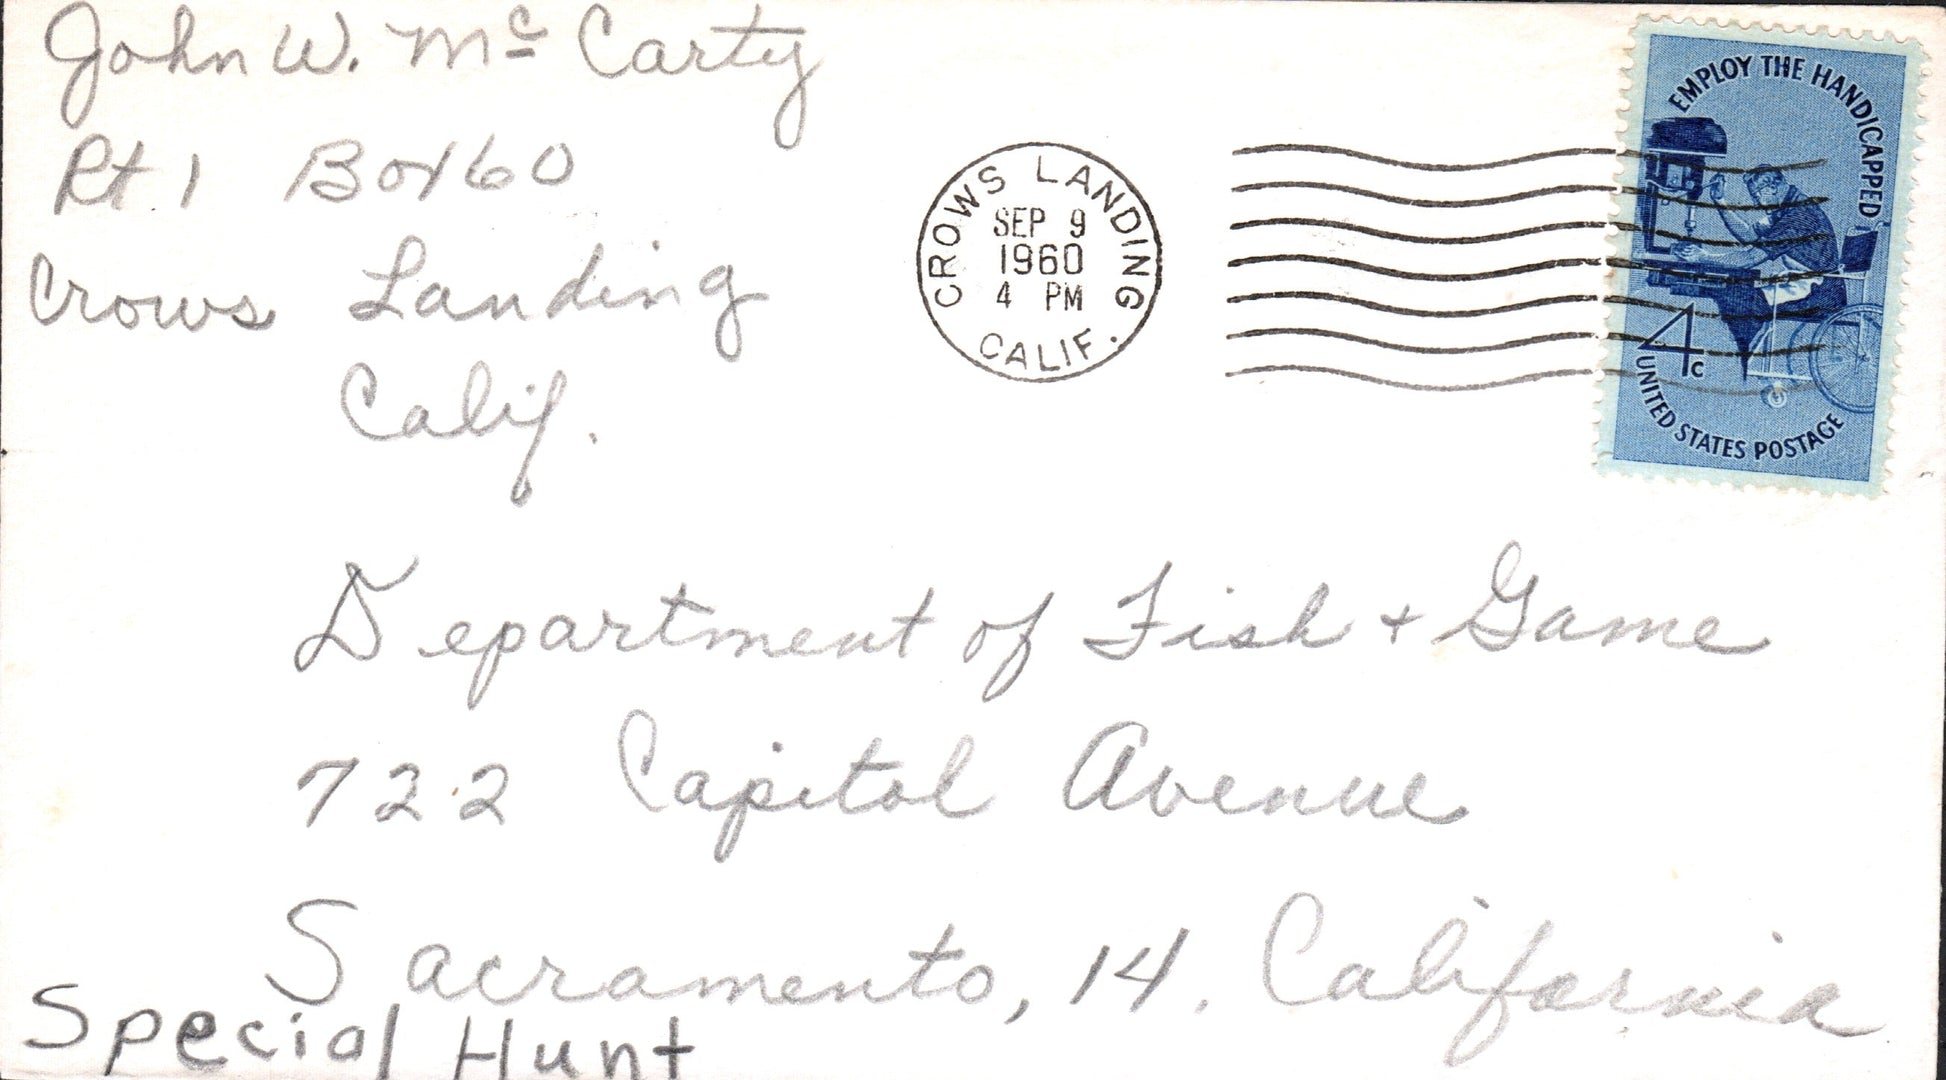 John W. Mc Carty
Rt. 1 Box 160
Crows Landing
Calif.
CROWS LANDING
SEP 9
1960
4 PM
CALIF.
EMPLOY THE HANDICAPPED
4c
UNITED STATES POSTAGE
Department of Fish + Game
722 Capitol Avenue
Sacramento, 14. California
Special Hunt